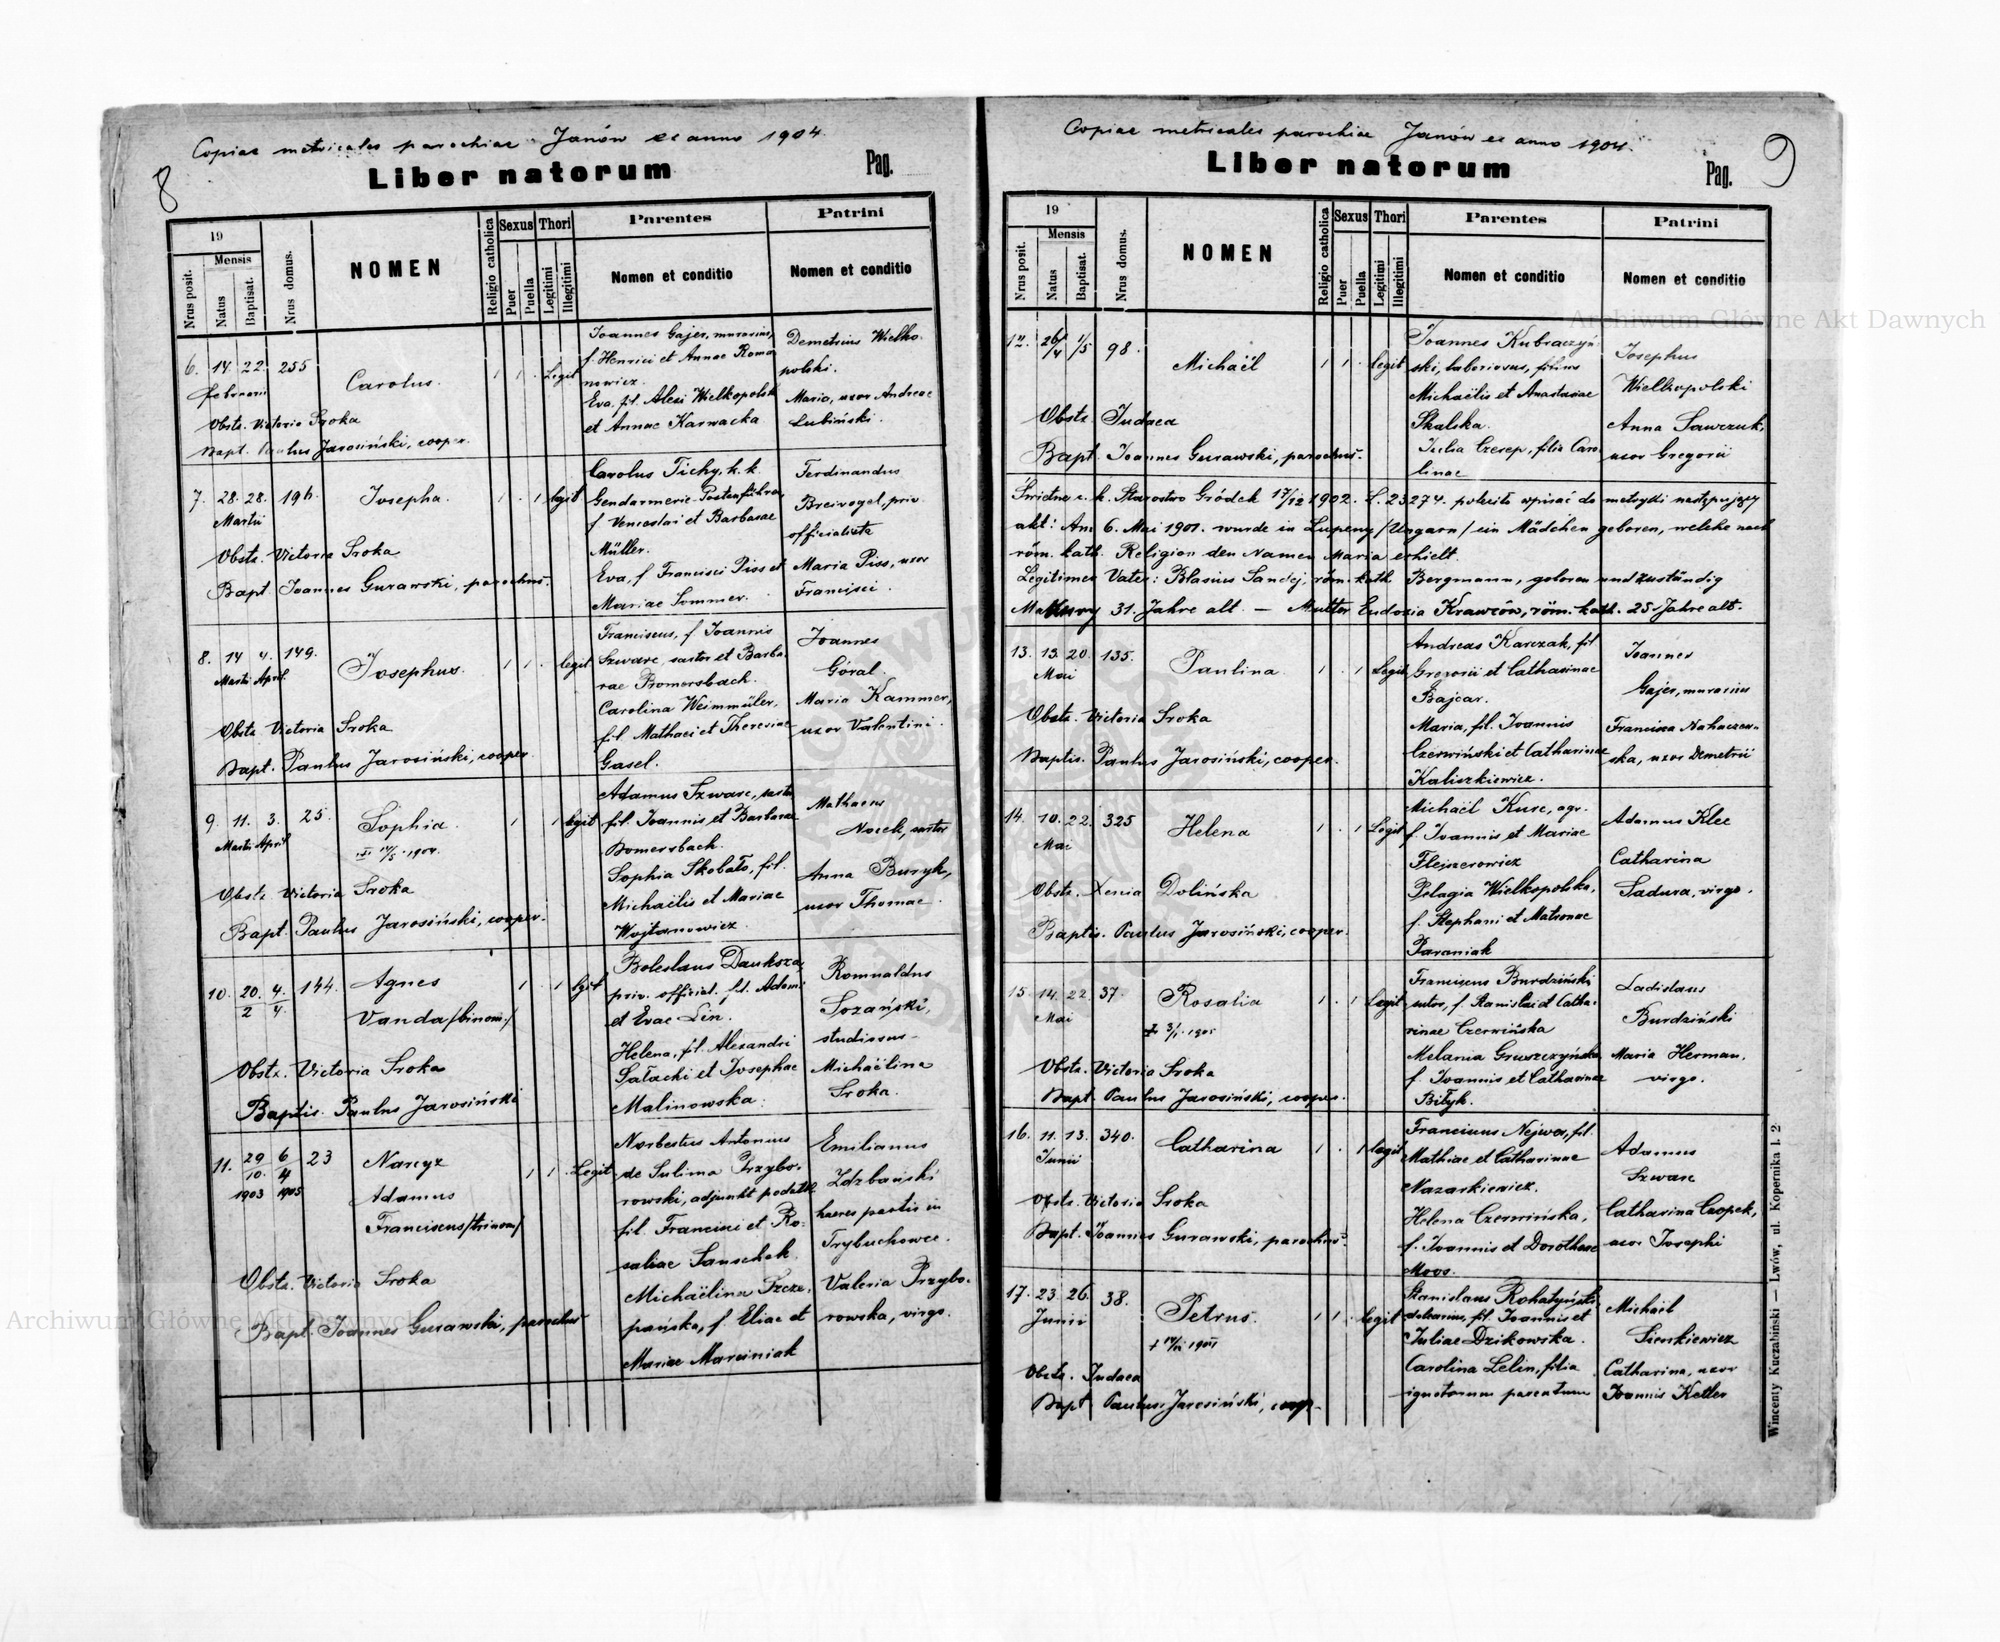 Copiae metricales parochiae Janów ex anno 1904.
8
Liber natorum
Pag.
19
Mensis
Nrus posit.
Natus
Baptisat.
Nrus domus.
NOMEN
Religio catholica
Sexus
Puer
Puella
Thori
Legitimi
Illegitimi
Parentes
Nomen et conditio
Patrini
Nomen et conditio
6. 14 22. 255
februarii
Carolus.
1 1 . Legit
Joannes Gajer, murarius,
f. Henrici et Annae Roma
nowicz.
Eva, fil. Alexi Wielkopolski
et Annae Karwacka
Demetrius Wielko-
polski.
Maria, uxor Andreae
Lubiński.
Obstz. Victoria Sroka
Bapt. Paulus Jarosiński, cooper.
7. 28. 28. 196.
Martii
Josepha.
1 . 1 legit
Carolus Tichy, k. k.
Gendarmerie-Postenführer,
f. Venceslai et Barbarae
Müller.
Eva, f. Francisci Piss et
Mariae Sommer.
Ferdinandus
Breivogel, priv.
officialista
Maria Piss, uxor
Francisci.
Obstz. Victoria Sroka
Bapt Joannes Gurawski, parochus.
8. 14 4. 149.
Martii April.
Josephus.
1 1 . legit
Franciscus, f. Joannis
Szwarc, sartor et Barba-
rae Bomersbach.
Carolina Weimmüller,
fil. Mathaei et Theresiae
Gasel.
Joannes
Góral.
Maria Kammer,
uxor Valentini.
Obstz Victoria Sroka
Bapt. Paulus Jarosiński, cooper.
9. 11. 3. 25.
Martii April
Sophia.
14/5 1904.
1 . 1 legit
Adamus Szwarc, sartor
fil. Joannis et Barbarae
Bomersbach.
Sophia Skobało, fil.
Michaëlis et Mariae
Wojtanowicz.
Mathaeus
Nocek, sartor
Anna Buryk,
uxor Thomae.
Obstz. Victoria Sroka
Bapt. Paulus Jarosiński, cooper.
10. 20/2 4/4. 144.
Agnes
Vanda /binom./
1 . 1 legit
Boleslaus Dauksza,
priv. official. fil. Adami
et Evae Lin.
Helena, fil. Alexandri
Sałacki et Josephae
Malinowska.
Romualdus
Sozański,
studiosus.
Michaëlina
Sroka.
Obstz. Victoria Sroka
Baptis. Paulus Jarosiński
11. 29/10. 6/4 23
1903 1905
Narcyz
Adamus
Franciscus /trinom/
1 1 . Legit
Norbertus Antonius
de Sulima Przybo-
rowski, adjunkt podatk.
fil. Francisci et Ro-
saliae Sanschek.
Michaëlina Szcze-
pańska, f. Eliae et
Mariae Marciniak
Emilianus
Zdzbański
haeres partis in
Trybuchowce.
Valeria Przybo-
rowska, virgo.
Obstz. Victoria Sroka
Bapt. Joannes Gurawski, parochus
Copiae metricales parochiae Janów ex anno 1904.
9
Liber natorum
Pag.
19
Mensis
Nrus posit.
Natus
Baptisat.
Nrus domus.
NOMEN
Religio catholica
Sexus
Puer
Puella
Thori
Legitimi
Illegitimi
Parentes
Nomen et conditio
Patrini
Nomen et conditio
12. 26/4 1/5 98.
Michaël
1 1 . legit
Joannes Kubraczyń-
ski, laboriosus, filius
Michaëlis et Anastasiae
Skalska.
Julia Czesep, filia Caro
linae
Josephus
Wielkopolski
Anna Sawczuk,
uxor Gregorii
Obstz. Judaea
Bapt. Joannes Gurawski, parochus.
Świetne c. k. Starostwo Gródek 17/12 1902. L. 23274. poleciło wpisać do metryki następujący
akt: Am 6. Mai 1901. wurde in Lupeny /Ungarn/ ein Mädchen geboren, welche nach
röm. kath. Religion den Namen Maria erhielt.
Legitimer Vater: Blasius Sandej, röm. kath. Bergmann, geboren und zuständig
31. Jahre alt. — Mutter Eudoxia Krawców, röm. kath. 25 Jahre alt.
13. 13. 20. 135.
Mai
Paulina
1 . 1 Legit
Andreas Karczak, fil.
Gregorii et Catharinae
Bajcar.
Maria, fil. Joannis
Czerwiński et Catharinae
Kaliszkiewicz.
Joannes
Gajer, murarius
Francisca Nahaczew-
ska, uxor Demetrii
Obstz. Victoria Sroka
Baptis. Paulus Jarosiński, cooper.
14. 10. 22. 325
Mai
Helena
1 . 1 Legit
Michaël Kurc, agr.
f. Joannis et Mariae
Flejszerowicz
Pelagia Wielkopolska,
f. Stephani et Matronae
Paraniak
Adamus Klee
Catharina
Sadura, virgo.
Obstz. Xenia Dolińska
Baptis. Paulus Jarosiński, cooper.
15 14. 22. 37.
Mai
Rosalia
3/1 1905
1 . 1 legit
Franciscus Burdziński
sutor, f. Stanislai et Catha-
rinae Czerwińska
Melania Gruszczyńska
f. Joannis et Catharinae
Biłyk.
Ladislaus
Burdziński
Maria Herman,
virgo.
Obstz. Victoria Sroka
Bapt. Paulus Jarosiński, cooper.
16. 11. 13. 340.
Junii
Catharina
1 . 1 legit
Franciscus Nejwer, fil.
Mathiae et Catharinae
Nazarkiewicz.
Helena Czerwińska,
f. Joannis et Dorotheae
Moos.
Adamus
Szwarc
Catharina Czopek,
uxor Josephi
Obstz. Victoria Sroka
Bapt. Joannes Gurawski, parochus.
17. 23 26. 38.
Junii
Petrus.
1 1 . legit
Stanislaus Rohatyński
fil. Joannis et
Juliae Dzikowska.
Carolina Lelin, filia
ignotorum parentum
Michaël
Sienkiewicz
Catharina, uxor
Joannis Ketler
Obstz. Judaea
Bapt Paulus Jarosiński, coop.
Wincenty Kuczabiński — Lwów, ul. Kopernika l. 2
Archiwum Główne Akt Dawnych
Archiwum Główne Akt Dawnych